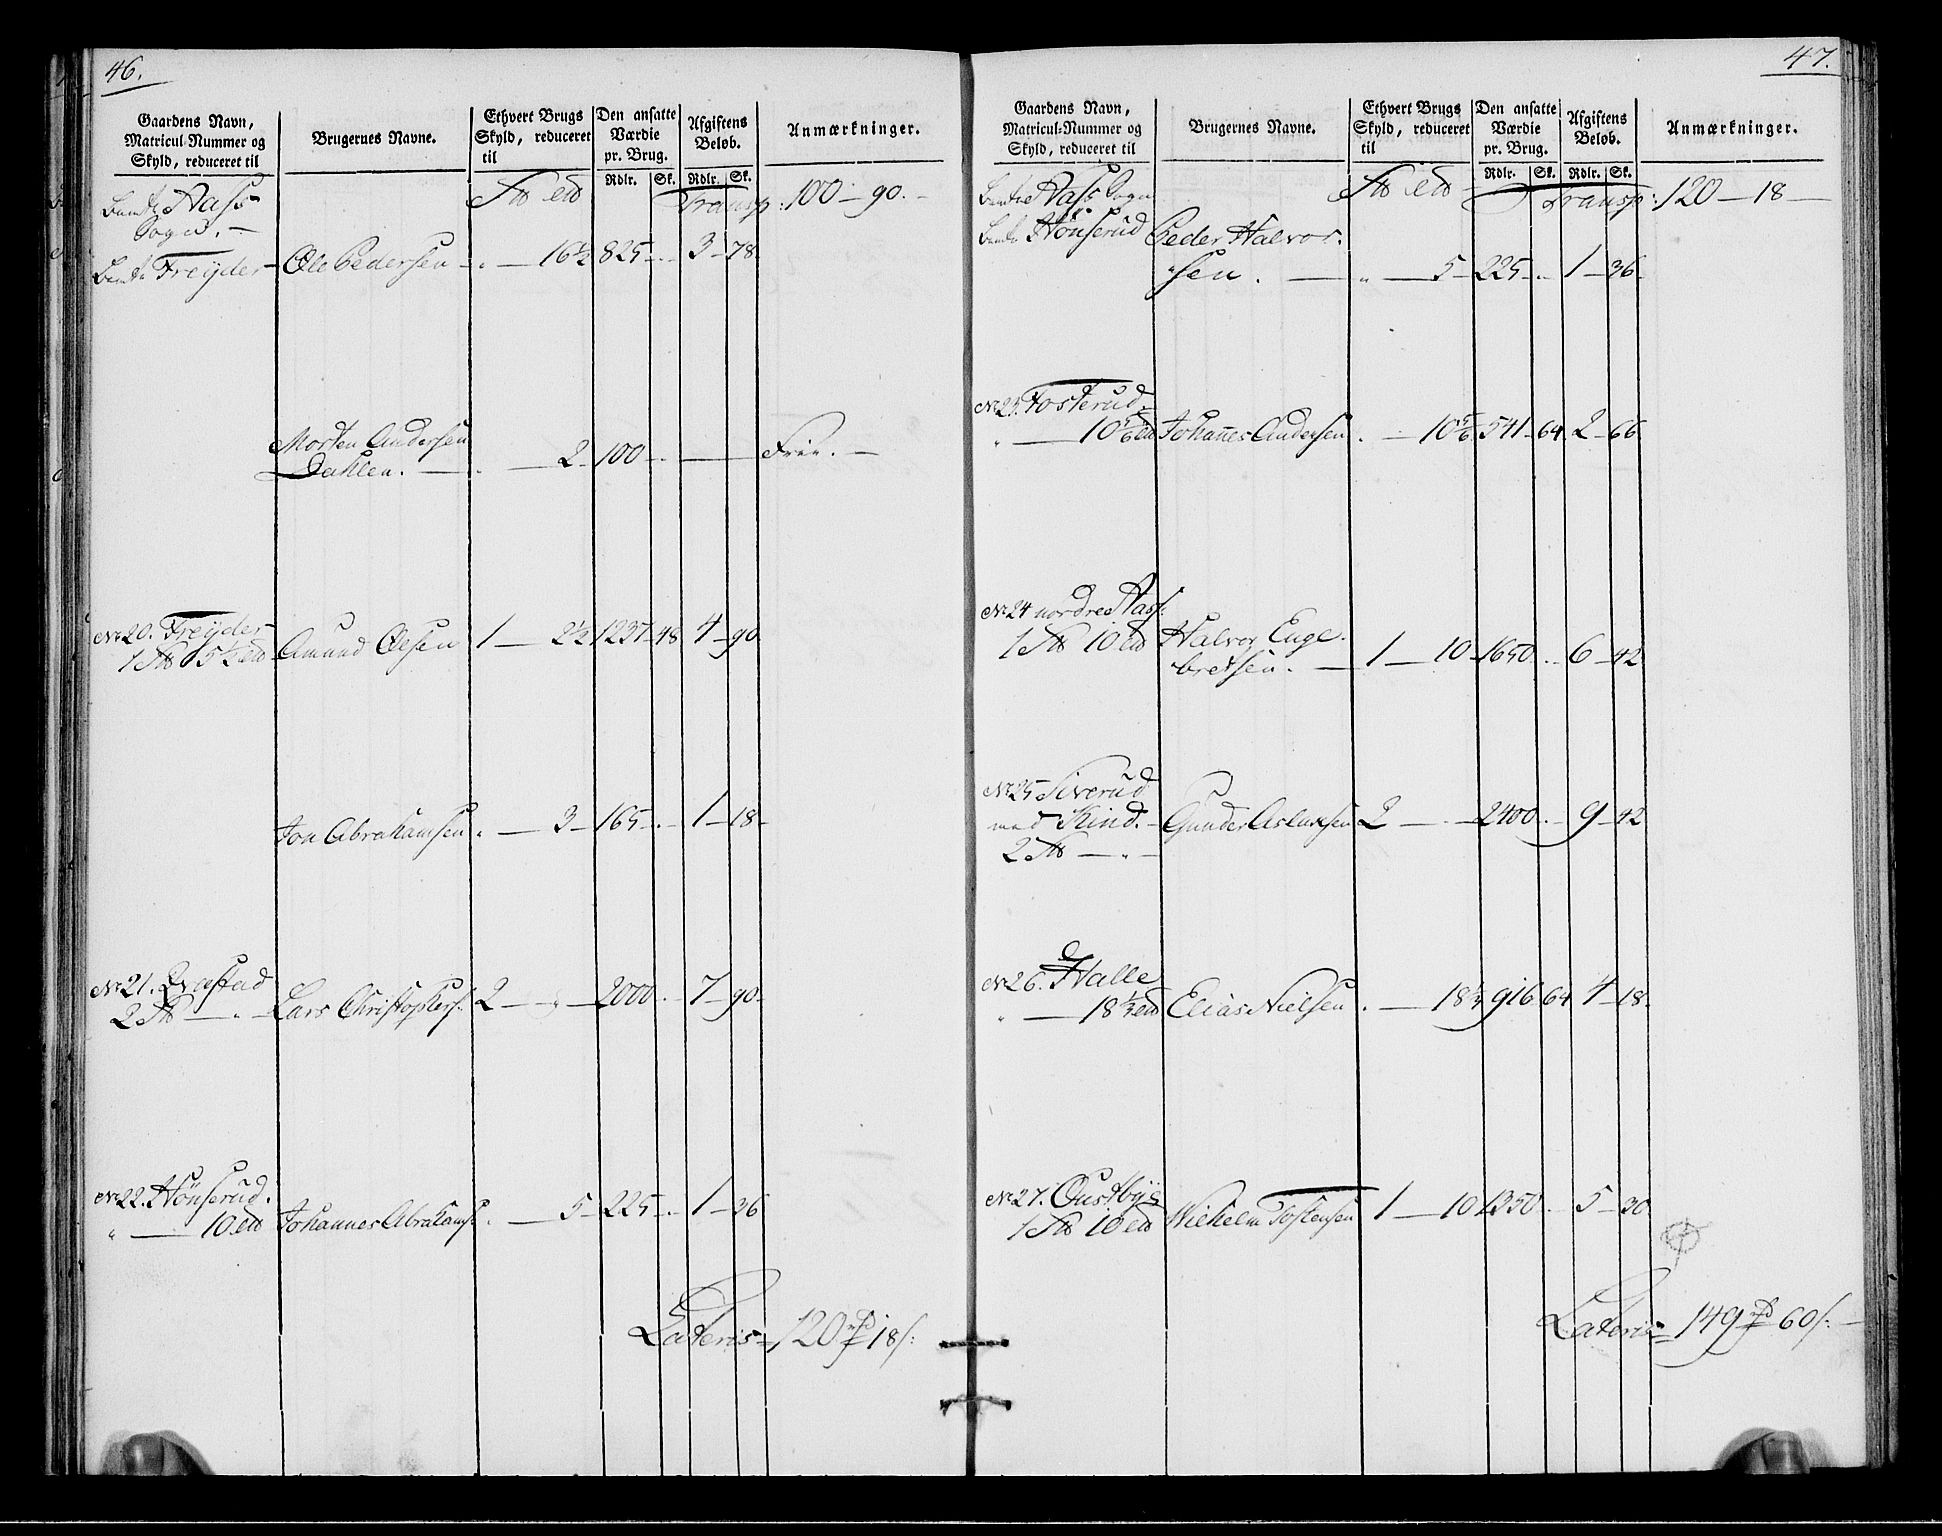 46.
Gaardens Navn,
Matricul-Nummer og
Skyld, reduceret til
Brugernes Navne.
Ethvert Brugs
Skyld, reduceret
til
Den ansatte
Værdie
pr. Brug.
Rdlr. Sk.
Afgiftens
Beløb.
Rdlr. Sk.
Anmærkninger.
Aass
Sogn.
Transp: 100 - 90.
Freyder Ole Pedersen - " - 16½ 825 - " - 3 - 78
Morten Andersen
Dahlen. - " - 2 - 100 - " - Frie.
No 20. Freyder
5½ Amund Olsen 1 - 2½ 1237 - 48 4 - 90
Jon Abrahamsen " - 3 - 165 - " - 1 - 18
No 21. Qvastad
2 - " - Lars Christophers: 2 - " - 2000 - " 7 - 90
No 22. Hönserud.
" - 10 Johannes Abrahams: " - 5 - 225 - " - 1 - 36
Lateris = 120 18 s:
47.
Gaardens Navn,
Matricul-Nummer og
Skyld, reduceret til
Brugernes Navne.
Ethvert Brugs
Skyld, reduceret
til
Den ansatte
Værdie
pr. Brug.
Rdlr. Sk.
Afgiftens
Beløb.
Rdlr. Sk.
Anmærkninger.
Aass Sogn
Transp: 120 - 18
Hönserud Peder Halvor-
sen. - " - 5 - 225 - " 1 - 36
No 23. Fosterud
" - 10 5/6 Johannes Andersen " - 10 5/6 541 - 64 2 - 66
No 24 nordre Aass
1 10 Halvor Enge-
bretsen. - 1 - 10 - 1650 - " 6 - 42
No 25 Siverud
med Kind. - Gunder Aslaksen 2 - " - 2400 - " 9 - 42
2 - " -
No 26. Halle
" - 18⅓ Elias Nielsen " - 18⅓ 916 64 4 - 18
No 27. Oustbye
1 10 Wilhelm Tostensen 1 - 10 1350 - " 5 - 30
Lateris = 149 60 s: